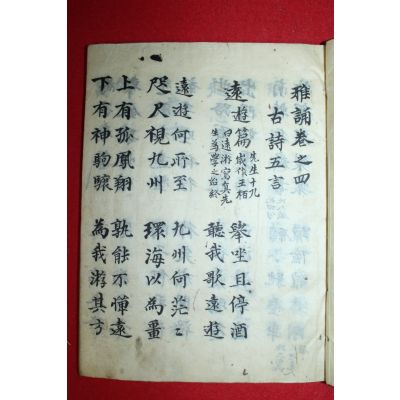 雅誦卷之四
古詩五言
遠遊篇
先生十九
歲作王柏
曰遠游寫真先
生為學之始終
舉坐且停酒
聽我歌遠遊
遠遊何所至 九州何茫〻
咫尺視九州 環海以為畺
上有孤鳳翔 孰能不憚遠
下有神駒驤 為我游其方